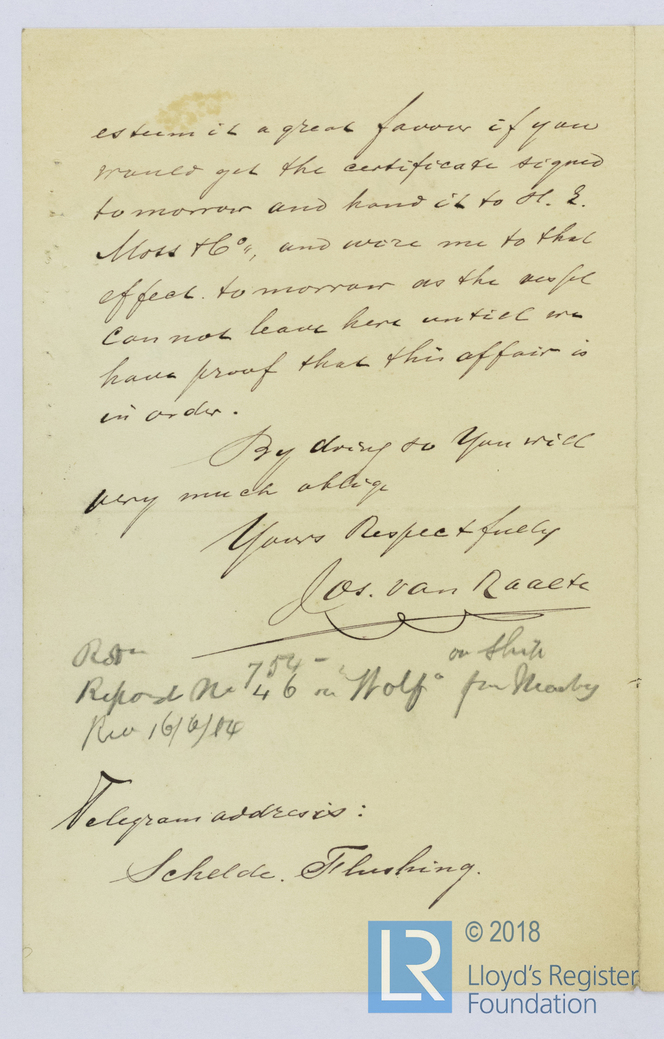 esteem it a great favour if you
would get the certificate signed
tomorrow and hand it to H. E.
Moss & Co., and wire me to that
effect. tomorrow as the vessel
can not leave here untill we
have proof that this affair is
in order.
By doing so You will
very much oblige
Yours Respectfully
Jos. van Raalte
on Ship
Report No 754 -
46 on "Wolf" for Masby
Rec 16/6/04
Telegramaddress:
Schelde. Flushing.
LR
© 2018
Lloyd's Register
Foundation